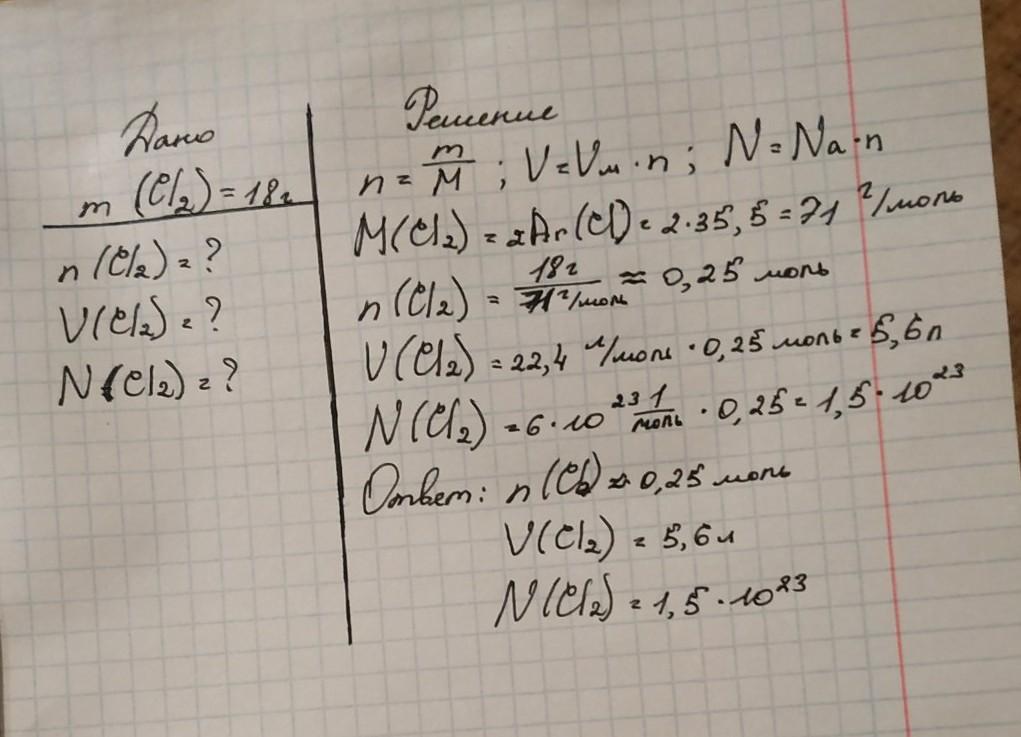 Дано
m (Cl₂) = 18г
n (Cl₂) = ?
V (Cl₂) = ?
N (Cl₂) = ?
Решение
n = m/M ; V = Vм · n ; N = Na · n
M(Cl₂) = 2Ar(Cl) = 2·35,5 = 71 г/моль
n(Cl₂) = 18г/71г/моль ≈ 0,25 моль
V(Cl₂) = 22,4 л/моль · 0,25 моль = 5,6л
N(Cl₂) = 6·10²³ 1/моль · 0,25 = 1,5·10²³
Ответ: n(Cl₂) ≈ 0,25 моль
V(Cl₂) = 5,6л
N(Cl₂) = 1,5·10²³